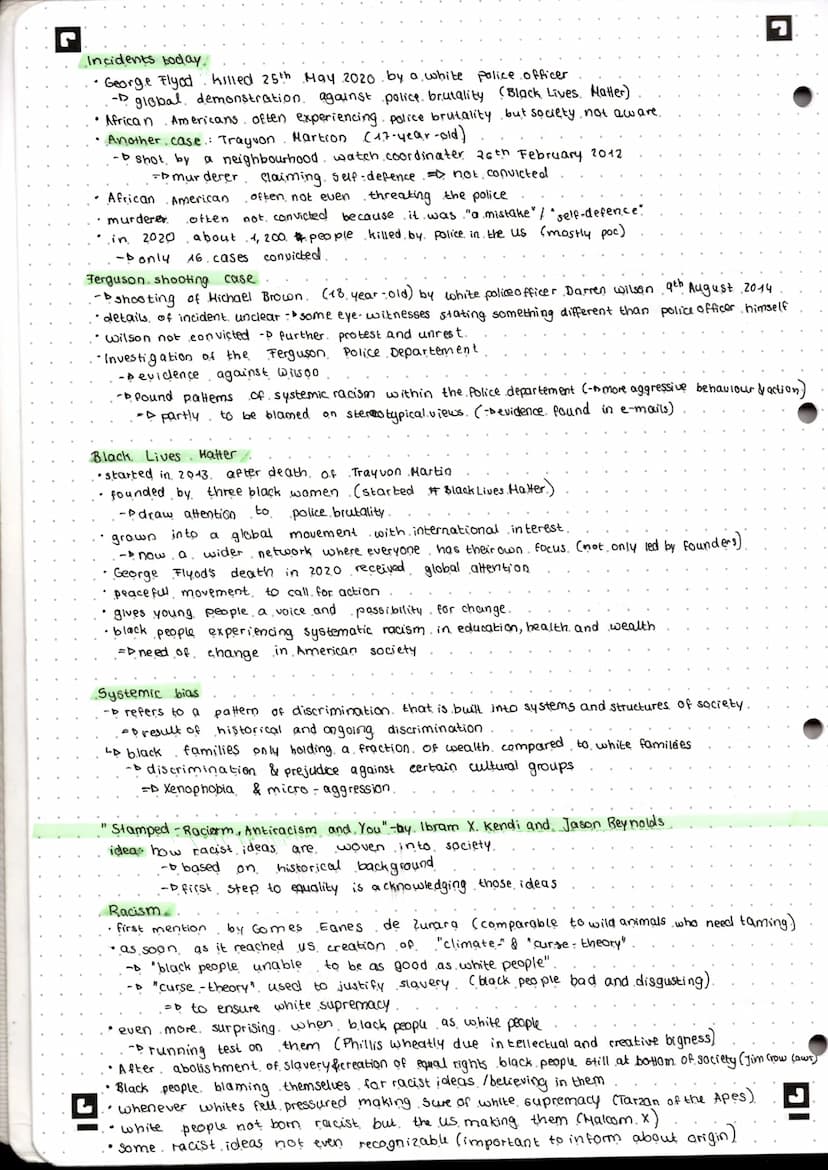 Incidents today
• George Flyod killed 25th May 2020 by a white police officer
→ global demonstration against police brutality (Black Lives Matter)
• African Americans often experiencing police brutality but society not aware
• Another case: Trayvon Martion (17-year-old)
→ shot by a neighbourhood watch coordinater 26th February 2012
⇒ murderer claiming self-defence ⇒ not convicted
• African American often not even threating the police
• murderer often not convicted because it was "a mistake" / "self-defence"
• in 2020 about 1,200 people killed by police in the US (mostly poc)
→ only 16 cases convicted
Ferguson shooting case
→ shooting of Michael Brown (18 year-old) by white policeofficer Darren Wilson 9th August 2014
• details of incident unclear → some eye-witnesses stating something different than police officer himself
• Wilson not convicted → further protest and unrest
• Investigation of the Ferguson Police Departement
→ evicience against Wilson
→ found patterns of systemic racism within the Police departement (→ more aggressive behaviour & action)
⇒ partly to be blamed on stereotypical views (→ evidence found in e-mails)
Black Lives Matter
• started in 2013 after death of Trayvon Martin
• founded by three black women (started #BlackLivesMatter)
→ draw attention to police brutality
• grown into a global movement with international interest
→ now a wider network where everyone has their own focus (not only led by founders)
• George Flyod's death in 2020 received global attention
• peaceful movement to call for action
• gives young people a voice and possibility for change
• black people experiencing systematic racism in education, health and wealth
⇒ need of change in American society
Systemic bias
→ refers to a pattern of discrimination that is built into systems and structures of society
⇒ result of historical and ongoing discrimination
↳ black families only holding a fraction of wealth compared to white families
→ discrimination & prejudice against certain cultural groups
⇒ Xenophobia & micro-aggression
"Stamped - Racism, Antiracism and You" - by Ibram X. Kendi and Jason Reynolds
idea: how racist ideas are woven into society
→ based on historical background
→ first step to equality is acknowledging those ideas
Racism
• first mention by Gomes Eanes de Zurara (comparable to wild animals who need taming)
• as soon as it reached US creation of "climate-" & "curse-theory"
→ "black people unable to be as good as white people"
→ "curse-theory" used to justify slavery (black people bad and disgusting)
⇒ to ensure white supremacy
• even more surprising when black people as white people
→ running test on them (Phillis Wheatly due intellectual and creative bigness)
• After abolishment of slavery & creation of equal rights black people still at bottom of society (Jim Crow laws)
• Black people blaming themselves for racist ideas / believing in them
• whenever whites felt pressured making sure of white supremacy (Tarzan of the Apes)
• white people not born racist but the US making them (Malcom X)
• some racist ideas not even recognizable (important to inform about origin)